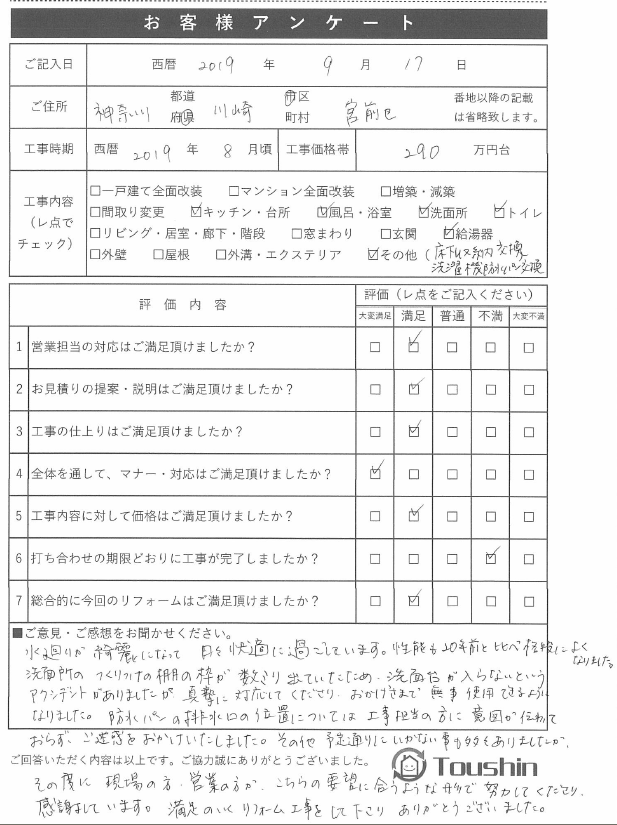 お客様アンケート
ご記入日 西暦 2019 年 9 月 17 日
ご住所 神奈川 都道府県 川崎 市区町村 宮前区 番地以降の記載は省略致します。
工事時期 西暦 2019 年 8 月頃 工事価格帯 290 万円台
工事内容（レ点でチェック）
□一戸建て全面改装 □マンション全面改装 □増築・減築
□間取り変更 ☑キッチン・台所 ☑風呂・浴室 ☑洗面所 ☑トイレ
□リビング・居室・廊下・階段 □窓まわり □玄関 ☑給湯器
□外壁 □屋根 □外溝・エクステリア ☑その他（床下収納交換
洗濯機防水パン交換
評価内容 評価（レ点をご記入ください）
大変満足 満足 普通 不満 大変不満
1 営業担当の対応はご満足頂けましたか？ □ ☑ □ □ □
2 お見積りの提案・説明はご満足頂けましたか？ □ ☑ □ □ □
3 工事の仕上りはご満足頂けましたか？ □ ☑ □ □ □
4 全体を通して、マナー・対応はご満足頂けましたか？ ☑ □ □ □ □
5 工事内容に対して価格はご満足頂けましたか？ □ ☑ □ □ □
6 打ち合わせの期限どおりに工事が完了しましたか？ □ □ □ ☑ □
7 総合的に今回のリフォームはご満足頂けましたか？ □ ☑ □ □ □
■ご意見・ご感想をお聞かせください。
水廻りが綺麗になって 日々快適に過ごしています。性能も20年前と比べ格段によく
なりました。
洗面所のつくりつけの棚の枠が数ミリ出ていたため、洗面台が入らないという
アクシデントがありましたが真摯に対応してくださり、おかげさまで無事使用できるように
なりました。防水パンの排水口の位置については工事担当の方に意図が伝わって
おらず、ご迷惑をおかけいたしました。その他 予定通りにいかない事も多々ありましたが、
ご回答いただく内容は以上です。ご協力誠にありがとうございました。
Toushin
その度に 現場の方、営業の方が、こちらの要望に合うような形で努力してくださり、
感謝しています。満足のいくリフォーム工事をして下さり ありがとうございました。